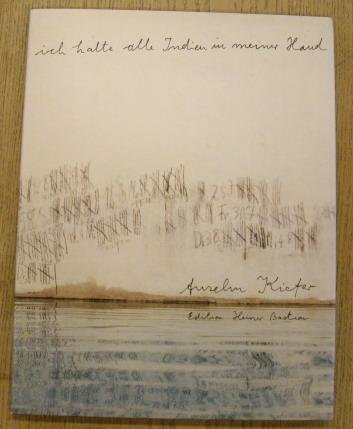 ich halte alle Indien in meiner Hand
Anselm Kiefer
Edition Heiner Bastian